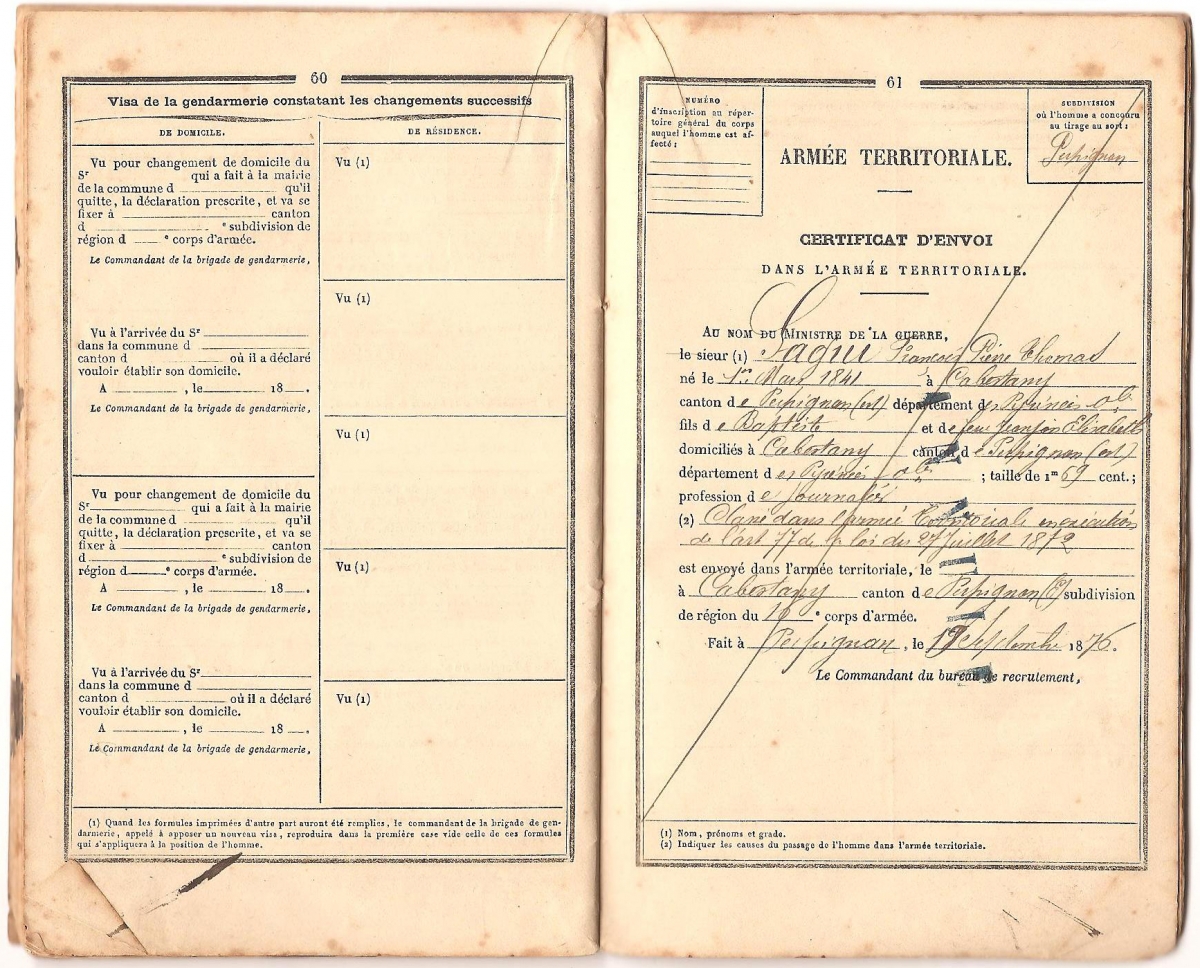 60
Visa de la gendarmerie constatant les changements successifs
DE DOMICILE.
Vu pour changement de domicile du
Sʳ qui a fait à la mairie
de la commune d qu'il
quitte, la déclaration prescrite, et va se
fixer à canton
d ᵉ subdivision de
région d ᵉ corps d'armée.
Le Commandant de la brigade de gendarmerie,
Vu à l'arrivée du Sʳ
dans la commune d
canton d où il a déclaré
vouloir établir son domicile.
A , le 18 .
Le Commandant de la brigade de gendarmerie,
Vu pour changement de domicile du
Sʳ qui a fait à la mairie
de la commune d qu'il
quitte, la déclaration prescrite, et va se
fixer à canton
d ᵉ subdivision de
région d ᵉ corps d'armée.
A , le 18 .
Le Commandant de la brigade de gendarmerie,
Vu à l'arrivée du Sʳ
dans la commune d
canton d où il a déclaré
vouloir établir son domicile.
A , le 18 .
Le Commandant de la brigade de gendarmerie,
DE RÉSIDENCE.
Vu (1)
Vu (1)
Vu (1)
Vu (1)
Vu (1)
(1) Quand les formules imprimées d'autre part auront été remplies, le commandant de la brigade de gen-
darmerie, appelé à apposer un nouveau visa, reproduira dans la première case vide celle de ces formules
qui s'appliquera à la position de l'homme.
61
NUMÉRO
d'inscription au réper-
toire général du corps
auquel l'homme est af-
fecté :
ARMÉE TERRITORIALE.
SUBDIVISION
où l'homme a concouru
au tirage au sort :
Perpignan
CERTIFICAT D'ENVOI
DANS L'ARMÉE TERRITORIALE.
AU NOM DU MINISTRE DE LA GUERRE,
le sieur (1) François Pierre Thomas
né le 1er Mars 1841 à Cabestany
canton de Perpignan (est) département des Pyrénées-Oles
fils de Baptiste et de feue Elisabeth
domiciliés à Cabestany canton de Perpignan (est)
département des Pyrénées Oles ; taille de 1ᵐ 69 cent.;
profession de journalier
(2) Classé dans l'armée Territoriale en exécution
de l'art 77 de la loi du 27 Juillet 1872
est envoyé dans l'armée territoriale, le
à Cabestany canton de Perpignan (E) subdivision
de région du ᵉ corps d'armée.
Fait à Perpignan, le Septembre 1876.
Le Commandant du bureau de recrutement,
(1) Nom, prénoms et grade.
(2) Indiquer les causes du passage de l'homme dans l'armée territoriale.